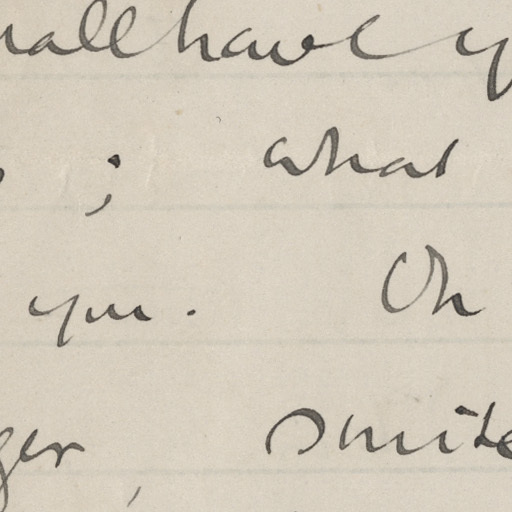 hall have y
; what
you. Oh
ger, smite